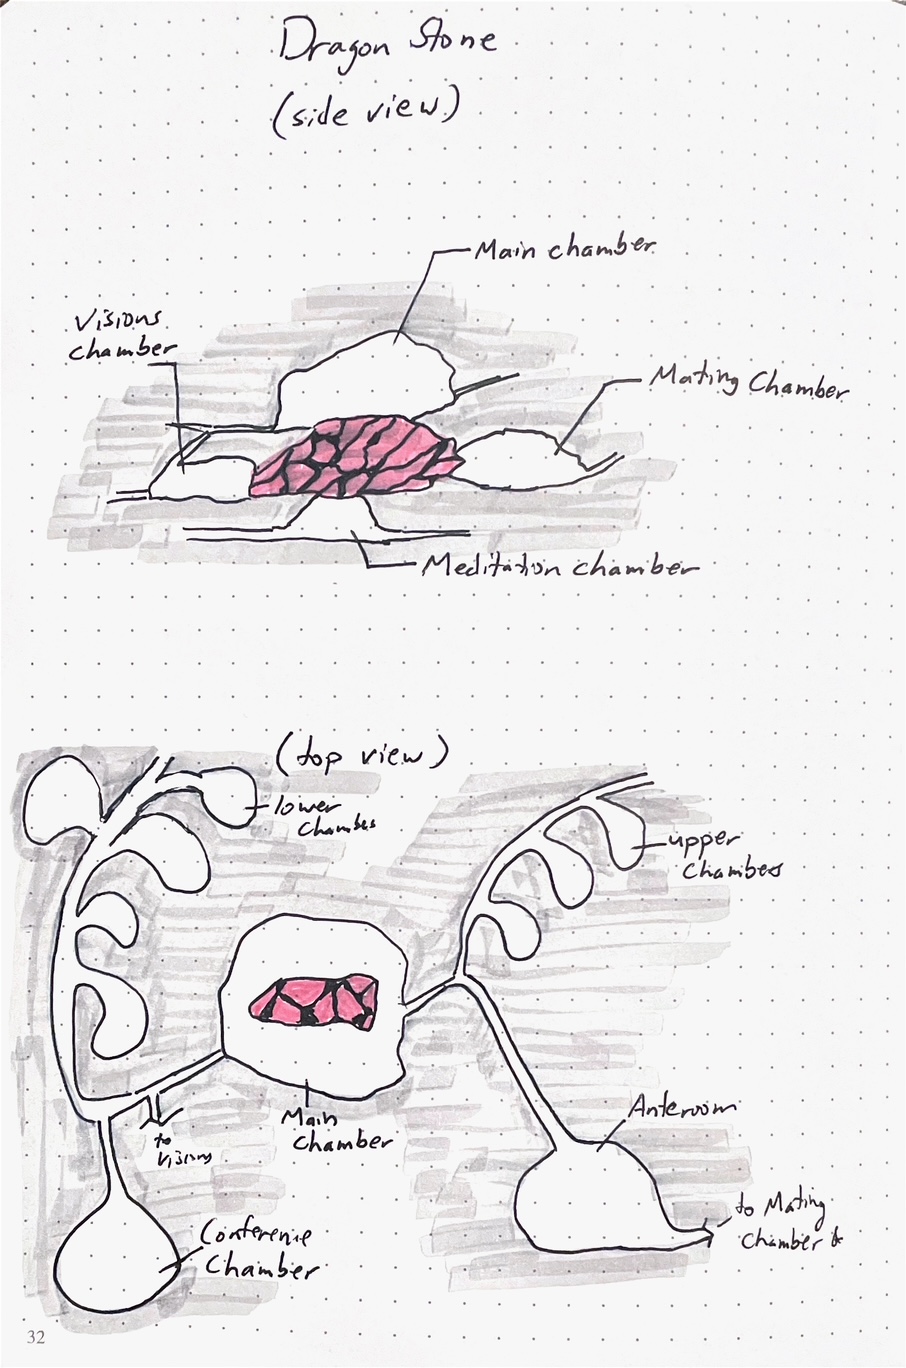 Dragon Stone
(side view)
Main chamber
Visions
chamber
Mating Chamber
Meditation chamber
(top view)
lower
Chambers
upper
Chambers
Main
Chamber
to
Visions
Anteroom
to Mating
Chamber
Conference
Chamber
32